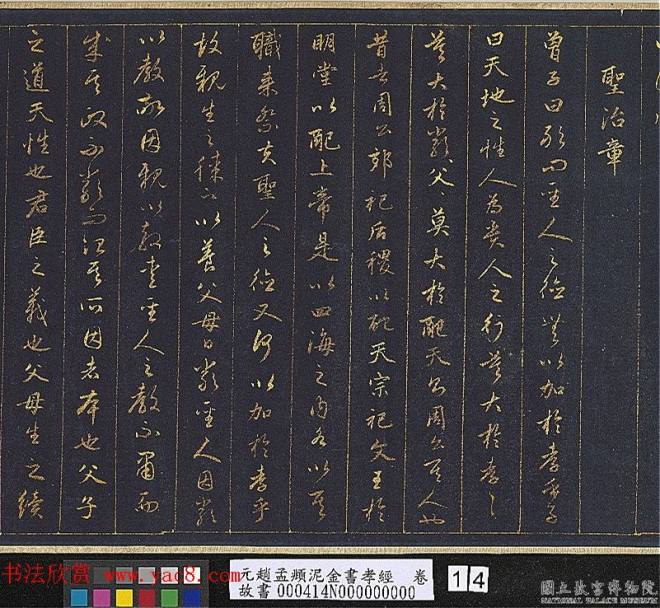 聖治章
曾子曰敢問聖人之德無以加於孝乎子
曰天地之性人為貴人之行莫大於孝〻
莫大於嚴〻父〻莫大於配天則周公其人也
昔者周公郊祀后稷以配天宗祀文王於
明堂以配上帝是以四海之內各以其
職來祭夫聖人之德又何以加於孝乎
故親生之膝下以養父母日嚴聖人因嚴
以教敬因親以教愛聖人之教不肅而
成其政不嚴而治其所因者本也父子
之道天性也君臣之義也父母生之續
书法欣赏 www.yac8.com
元趙孟頫泥金書孝經 卷
故書 000414N000000000
14
國立故宮博物院
NATIONAL PALACE MUSEUM